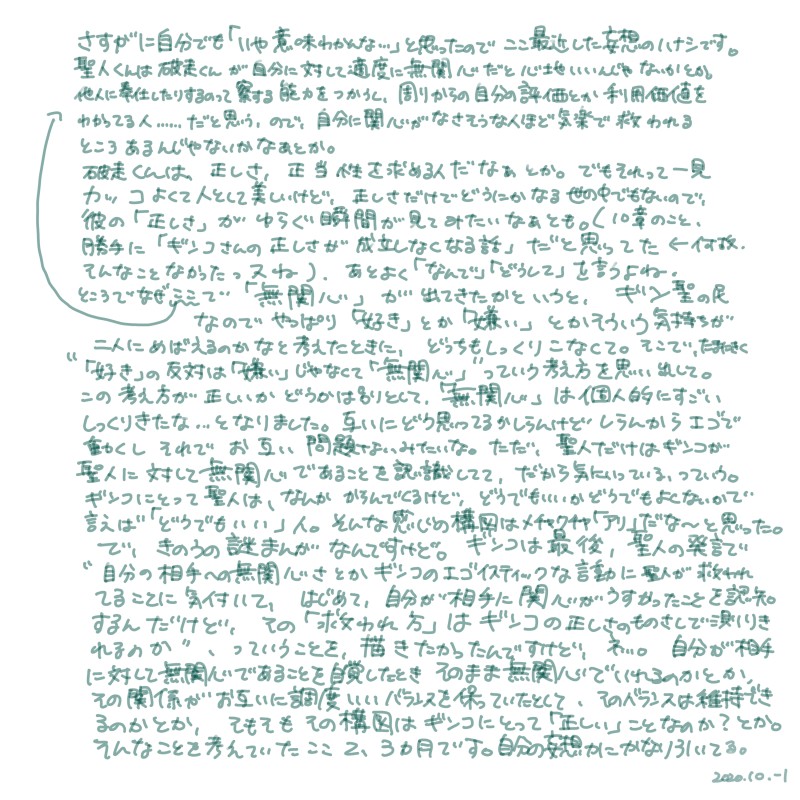 さすがに自分でも「いや意味わかんな…」と思ったので ここ最近した妄想のハナシです。
聖人くんは 破走くん が自分に対して適度に無関心だと心地いいんじゃ ないかとか。
他人に奉仕したりするのって 察する 能力をつかうし、周りからの自分の評価とか 利用価値を
わかってる人……だと思う、ので、自分に関心がなさそうな人ほど気楽で救われる
ところ あるんじゃないかなぁとか。
破走くんは、正しさ、正当性を求める人だなぁ とか。でもそれって一見
カッコよくて人として美しいけど、正しさだけでどうにかなる 世の中でもないので、
彼の「正しさ」が ゆらぐ瞬間が見てみたいなぁとも。(10章のこと、
勝手に「ギンコさんの正しさが 成立しなくなる話」だと思ってた ←何故、
そんなことなかったっスね)、あとよく「なんで」「どうして」を言うよね。
ところでなぜここで「無関心」が出てきたかというと、ギン聖の民
なのでやっぱり「好き」とか「嫌い」とかそういう気持ちが
二人にめばえるのかなと考えたときに、どっちもしっくりこなくて。そこで、
"「好き」の反対は「嫌い」じゃなくて「無関心」"っていう考え方を思い出して。
この考え方が正しいかどうかはおいとして、「無関心」は個人的にすごい
しっくりきたな…となりました。互いにどう思ってるかしらんけど しらんからエゴで
動くし それで お互い 問題なしみたいな。ただ、聖人だけはギンコが
聖人に対して無関心であることを認識してて、だから気にいっている、っていう。
ギンコにとって聖人は、なんか からんでくるけど、どうでもいいかどうでもよくないかで
言えば「どうでもいい」人。そんな感じの構図はメチャクチャ「アリ」だな〜と思った。
で、きのうの謎まんが なんですけど。ギンコは最後、聖人の発言で
"自分の相手への無関心さとかギンコのエゴイスティックな言動に聖人が救われ
てることに気付いて、はじめて、自分が相手に関心がうすかったことを認知
するんだけど、その「救われ方」はギンコの正しさのものさしで測りき
れるのか"、っていうことを、描きたかったんですけど、ネ…。自分が相手
に対して無関心であることを自覚したとき そのまま無関心でいれるのかとか、
その関係がお互いに調度いいバランスを保っていたとして、そのバランスは維持でき
るのかとか、そもそも その構図は ギンコにとって「正しい」ことなのか?とか。
そんなことを考えていた ここ 2、3カ月です。自分の妄想力にかなり引いてる。
2020.10.-1